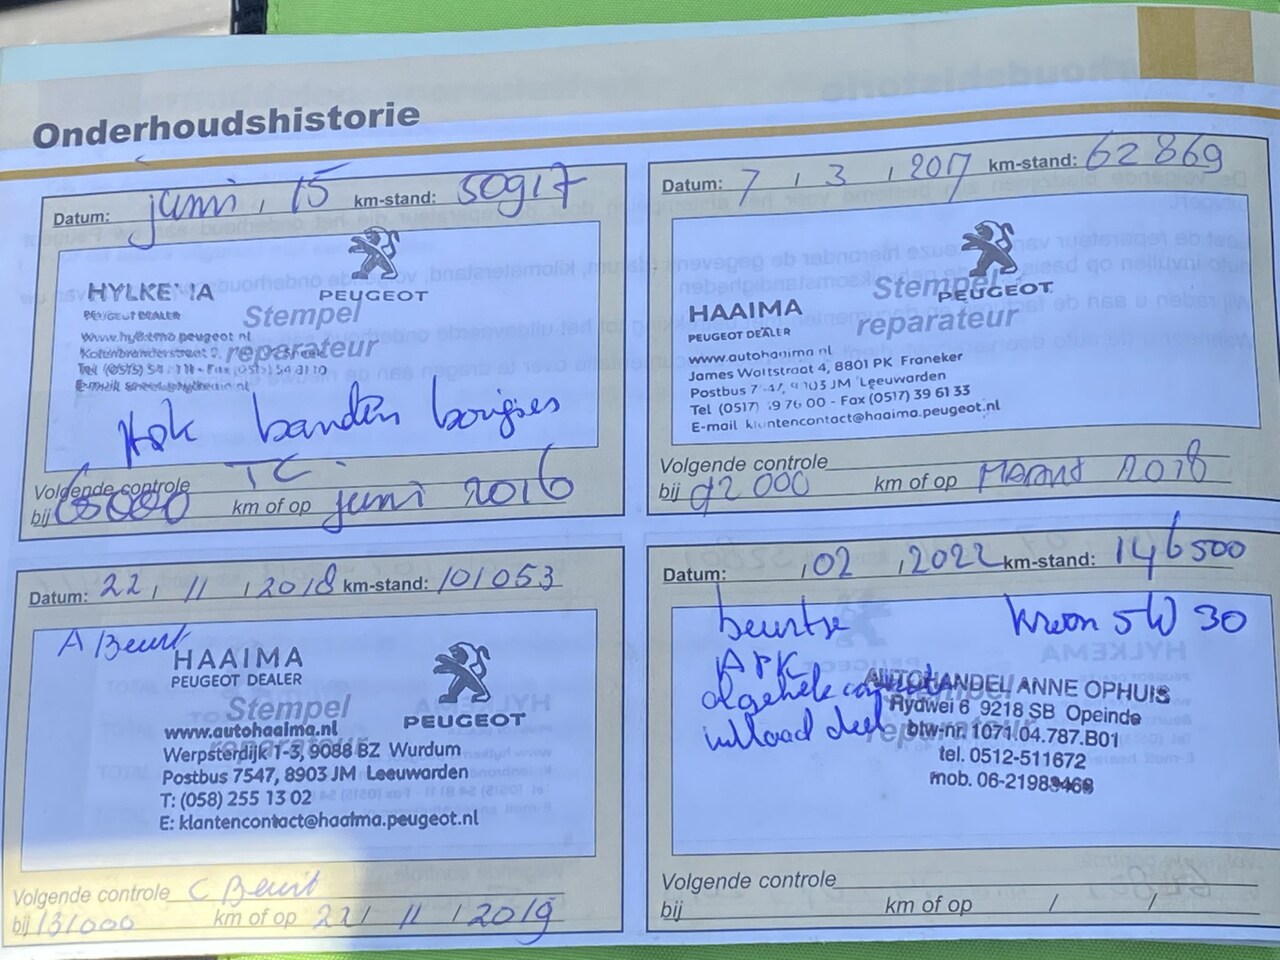 Onderhoudshistorie
Datum: juni , 15 km-stand: 50917
HYLKEMA
PEUGEOT DEALER
PEUGEOT
Stempel
reparateur
www.hylkema.peugeot.nl
banden
TC.
Volgende controle
bij 60000 km of op juni 2016
Datum: 7 , 3 , 2017 km-stand: 62869
HAAIMA
PEUGEOT DEALER
PEUGEOT
Stempel
reparateur
www.autohaaima.nl
James Wattstraat 4, 8801 PK Franeker
Postbus 8903 JM Leeuwarden
Tel (0517) 39 76 00 - Fax (0517) 39 61 33
E-mail klantencontact@haaima.peugeot.nl
Volgende controle
bij 92000 km of op Maart 2018
Datum: 22 , 11 , 2018 km-stand: 101053
A Beurt
HAAIMA
PEUGEOT DEALER
PEUGEOT
Stempel
reparateur
www.autohaaima.nl
Werpsterdijk 1-3, 9088 BZ Wurdum
Postbus 7547, 8903 JM Leeuwarden
T: (058) 255 13 02
E: klantencontact@haaima.peugeot.nl
Volgende controle C Beurt
bij 131000 km of op 22 / 11 / 2019
Datum: , 02 , 2022 km-stand: 146500
beurtje Kroon 5W30
APK
algehele controle
Stempel
reparateur
AUTOHANDEL ANNE OPHUIS
Rydwei 6 9218 SB Opeinde
btw-nr. 1071.04.787.B01
tel. 0512-511672
mob.
Volgende controle
bij km of op / /